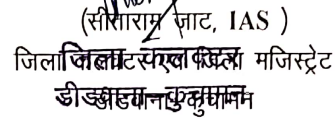 (सीताराम जाट, IAS )
जिला कलक्टर एवं जिला मजिस्ट्रेट
डीडवाना-कुचामन